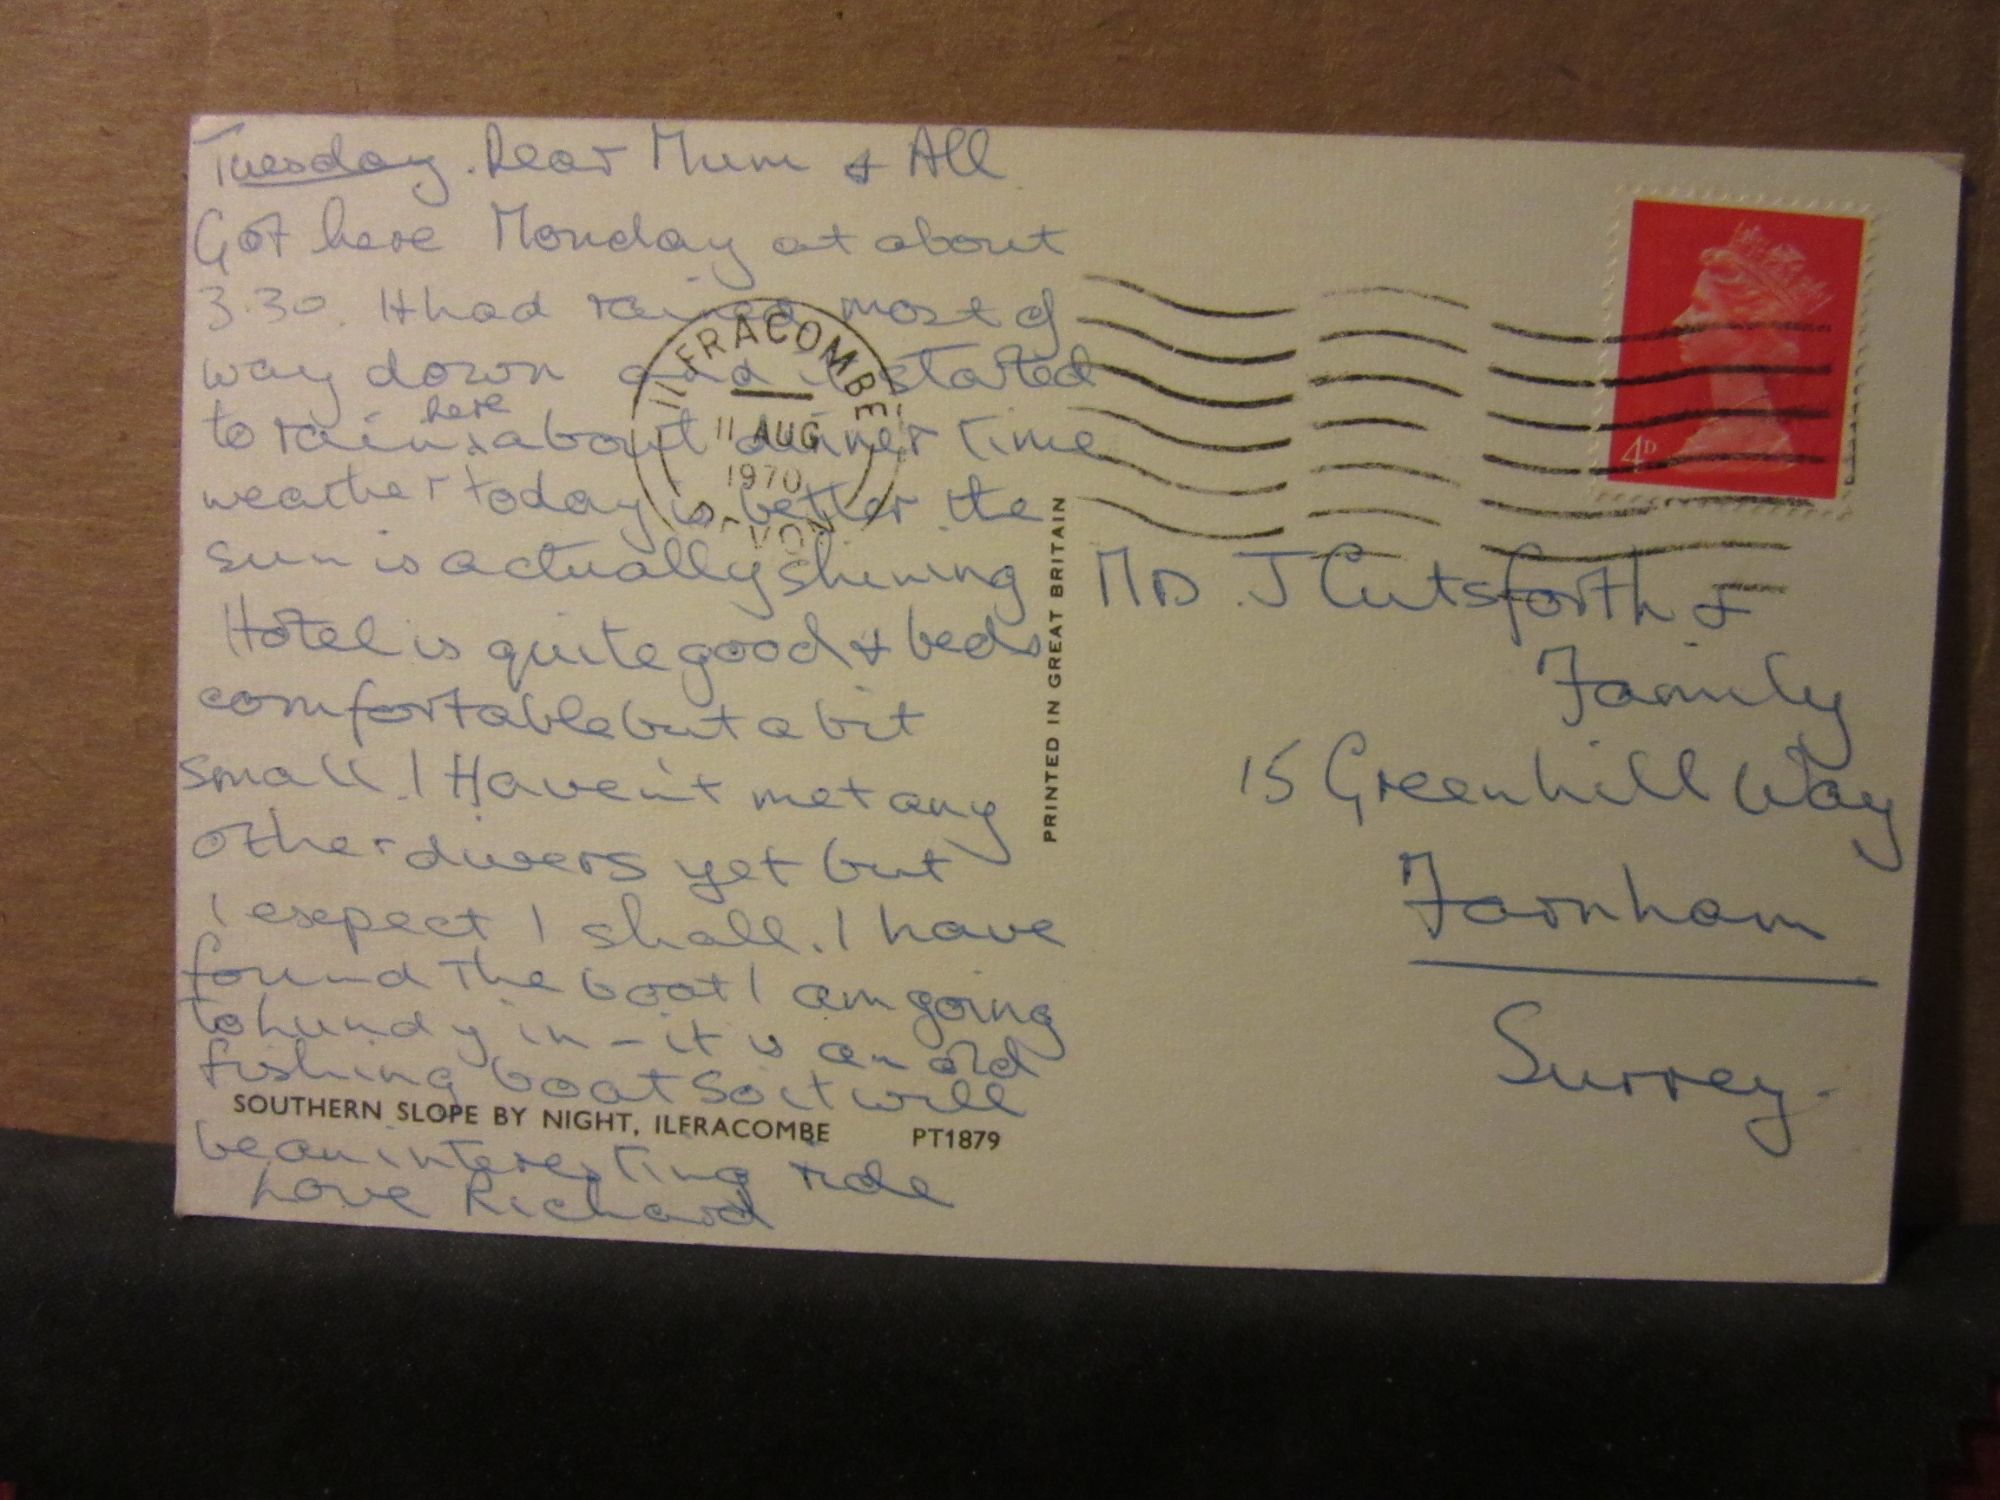 Tuesday. Dear Mum & All
Got here Monday at about
3.30. It had rained most of
way down and it started
to rain here about dinner time
weather today is better the
sun is actually shining
Hotel is quite good & beds
comfortable but a bit
small. I Haven't met any
other divers yet but
I esepect I shall. I have
found the boat I am going
to Lundy in - it is an old
fishing boat so it will
be an interesting ride
Love Richard
SOUTHERN SLOPE BY NIGHT, ILFRACOMBE PT1879
PRINTED IN GREAT BRITAIN
ILFRACOMBE
11 AUG
1970
DEVON
4D
J Cutsforth &
Family
15 Greenhill Way
Farnham
Surrey.